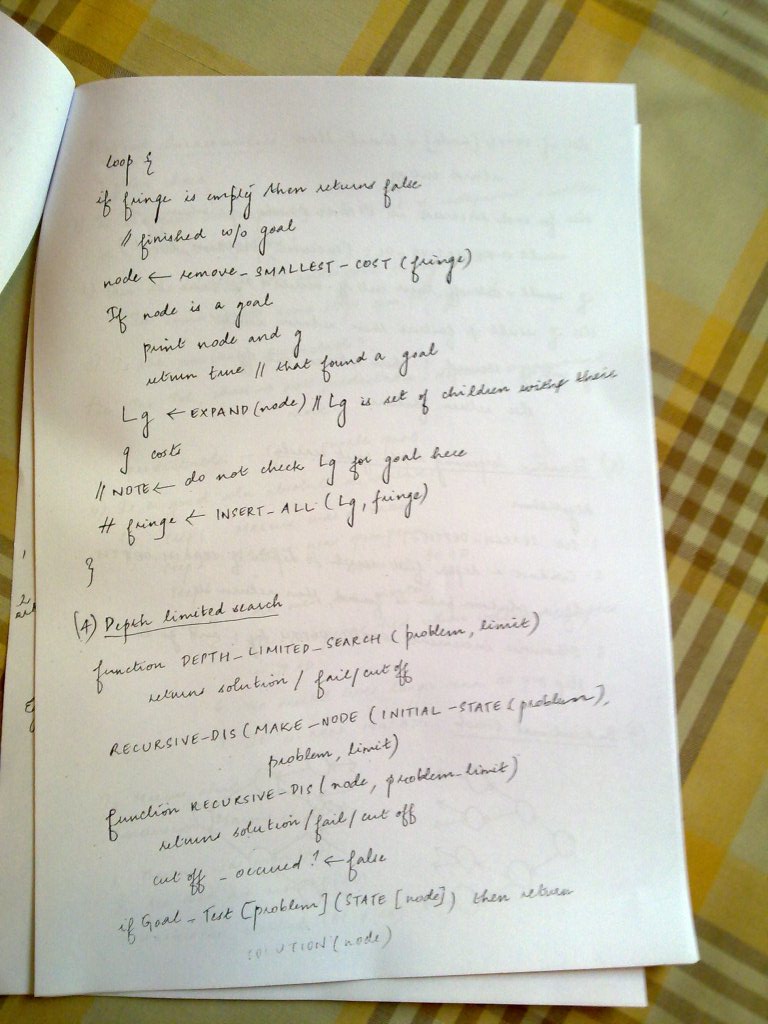 loop {
if fringe is empty then returns false
// finished w/o goal
node ← remove_SMALLEST_COST (fringe)
If node is a goal
print node and g
return true // that found a goal
Lg ← EXPAND (node) // Lg is set of children with their
g costs
// NOTE ← do not check Lg for goal here
# fringe ← INSERT_ALL (Lg, fringe)
}
(4) Depth limited search
function DEPTH_LIMITED_SEARCH (problem, limit)
returns solution / fail/cut off
RECURSIVE-DIS (MAKE_NODE (INITIAL-STATE (problem),
problem, limit)
function RECURSIVE-DIS (node, problem-limit)
returns solution/fail/cut off
cut off _ occured ? ← false
if Goal_Test [problem] (STATE [node]) then return
SOLUTION (node)